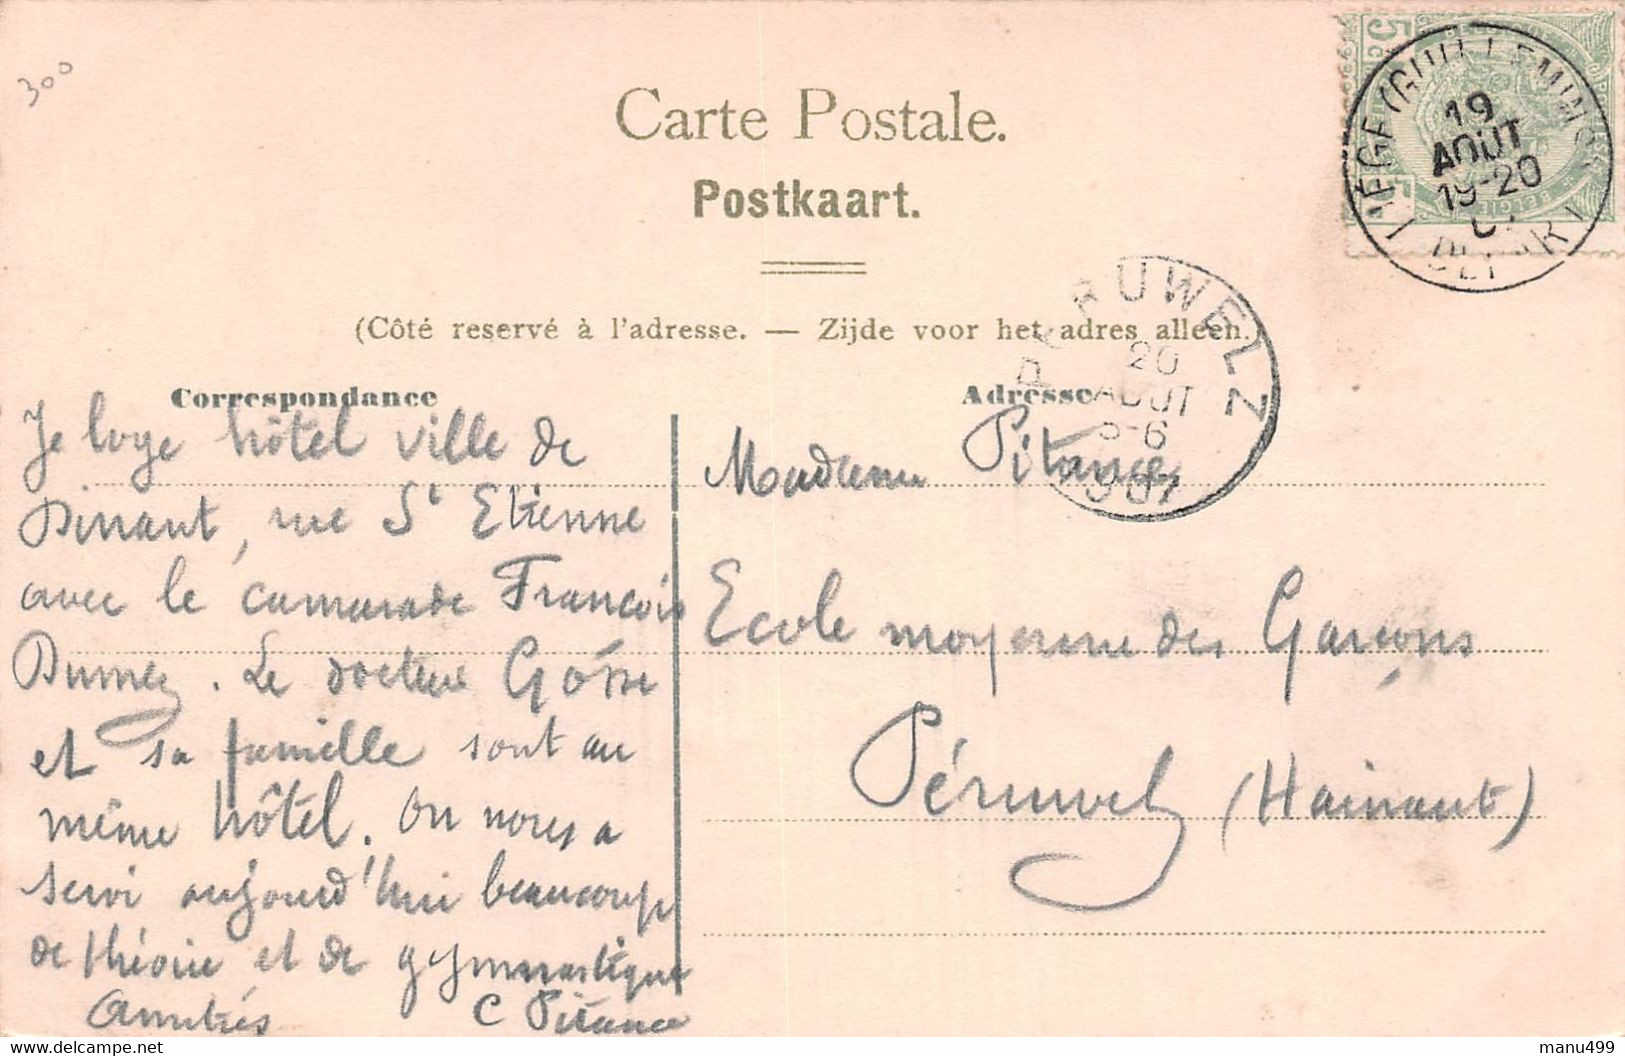 300
Carte Postale.
Postkaart.
(Côté reservé à l'adresse. — Zijde voor het adres alleen.)
5c
5
BELGIE
LIÈGE (GUILLEMINS)
19
AOÛT
19-20
DEPART
PERUWELZ
20
AOUT
5-6
1907
Correspondance
Je loge hôtel ville de
Dinant, rue St Etienne
avec le camarade François
Dumez. Le docteur Gosse
et sa famille sont au
même hôtel. On nous a
servi aujourd'hui beaucoup
de théorie et de gymnastique
Amitiés C Pitance
Adresse
Madame Pitance
Ecole moyenne des Garçons
Péruwelz (Hainaut)
manu499